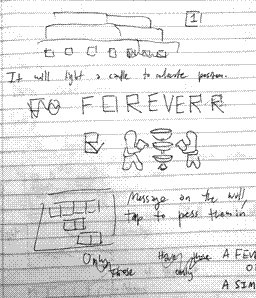 1
It will light a candle to indicate position.
FOREVERR
Message on the wall,
tap to press them in
Only these
Have these only
A FEW
O
A SIM